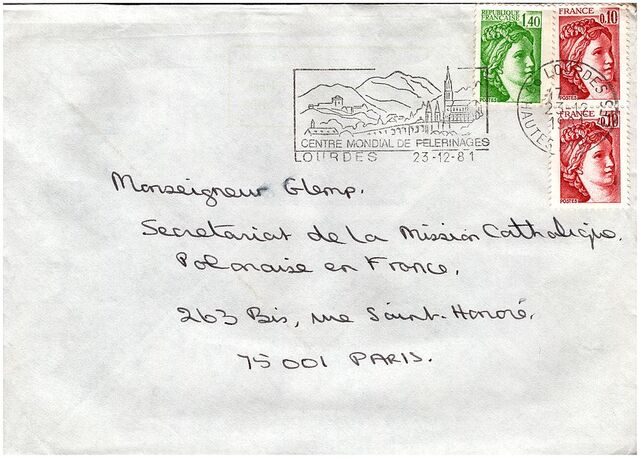 REPUBLIQUE FRANCAISE 1,40
POSTES
FRANCE 0,10
POSTES
FRANCE 0,10
POSTES
LOURDES
23-12
HAUTES
CENTRE MONDIAL DE PELERINAGES
LOURDES 23-12-81
Monseigneur Glemp.
Secretariat de la Mission Catholique.
Polonaise en France.
263 Bis, rue Saint-Honoré.
75001 PARIS.